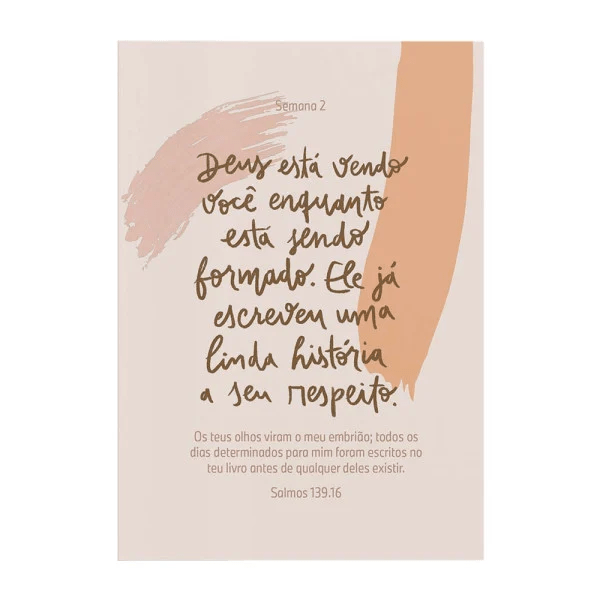 Semana 2
Deus está vendo
você enquanto
está sendo
formado. Ele já
escreveu uma
linda história
a seu respeito.
Os teus olhos viram o meu embrião; todos os
dias determinados para mim foram escritos no
teu livro antes de qualquer deles existir.
Salmos 139.16